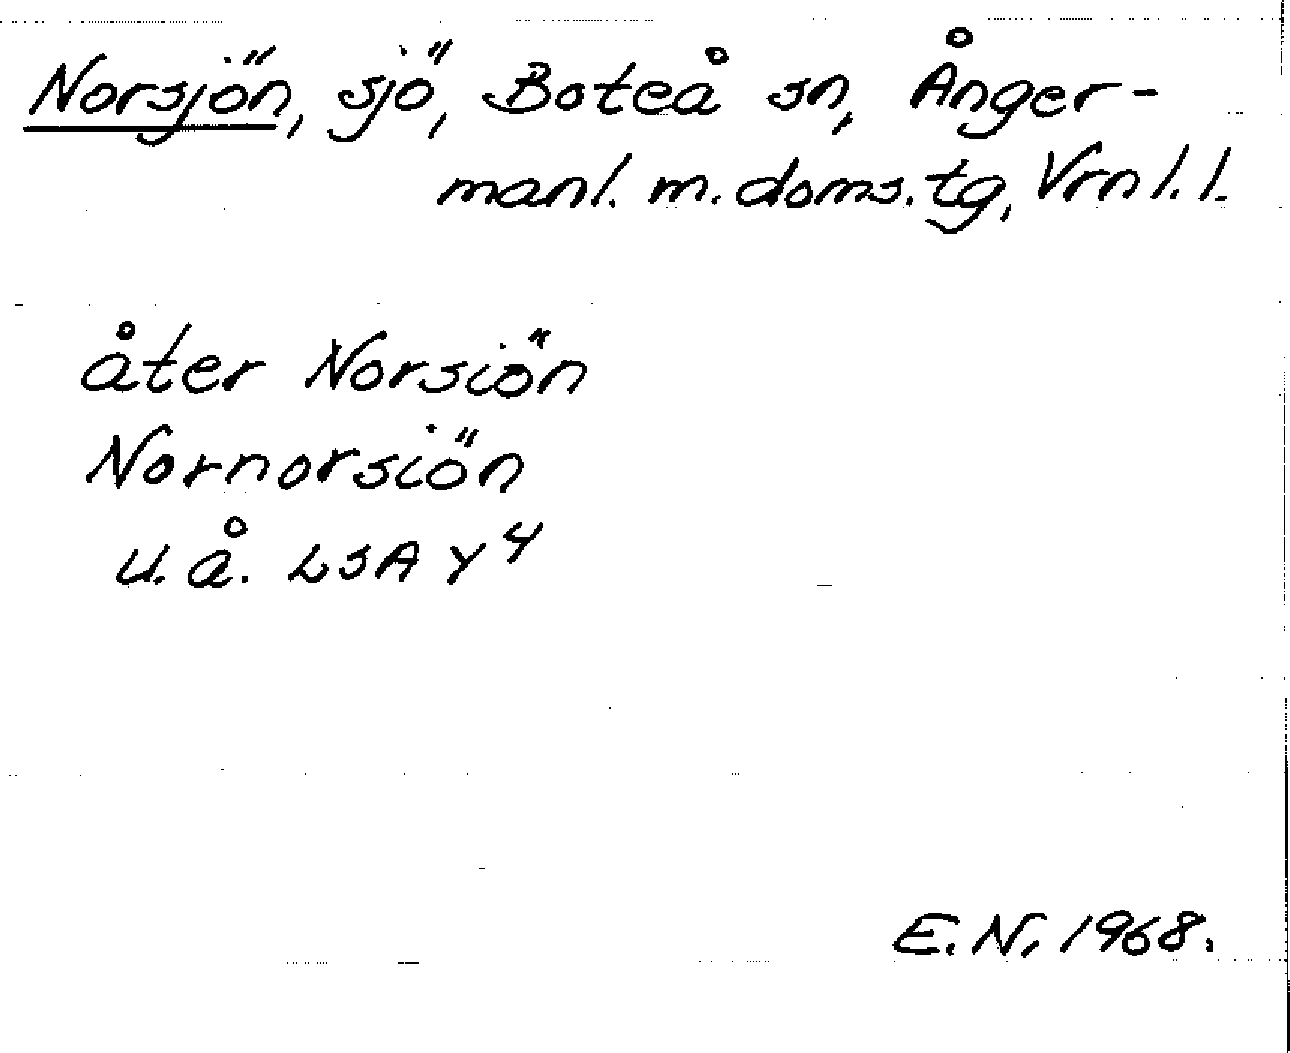 Norsjön, sjö, Boteå sn, Ånger-
manl. m. doms. tg, Vrnl. l.
åter Norsiön
Nornorsiön
u.å. LSA Y 4
E.N. 1968.